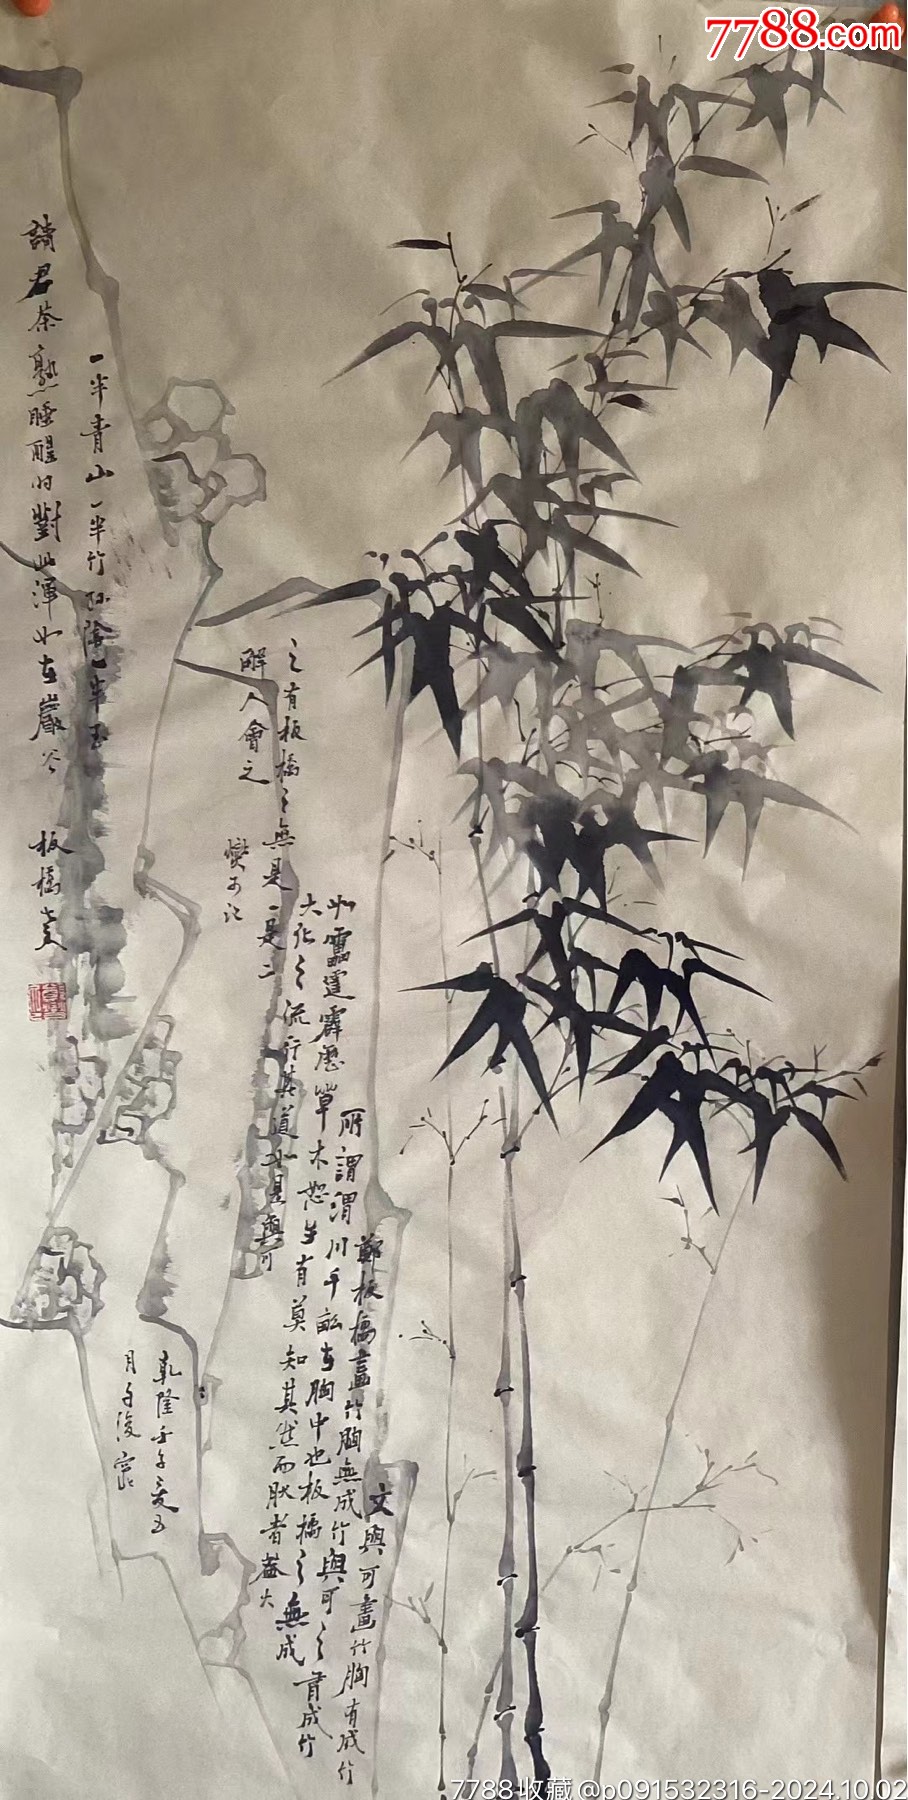 7788.com
文與可畫竹胸有成竹
鄭板橋畫竹胸無成竹與可之有成竹
所謂渭川千畝在胸中也板橋之無成
如雷霆霹靂草木怒生有莫知其然而然者蓋大
大化之流行其道如是與可
之有板橋之無是一是二
解人會之
燮可記
乾隆壬午夏五
一半青山一半竹 陰一半玉
請君茶熟睡醒时對此渾如在巖谷
板橋
7788收藏@p091532316-2024.10.02